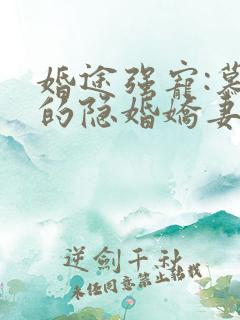 婚途强宠:慕
的隐婚娇妻
逆剑千秋
未经同意禁止转载